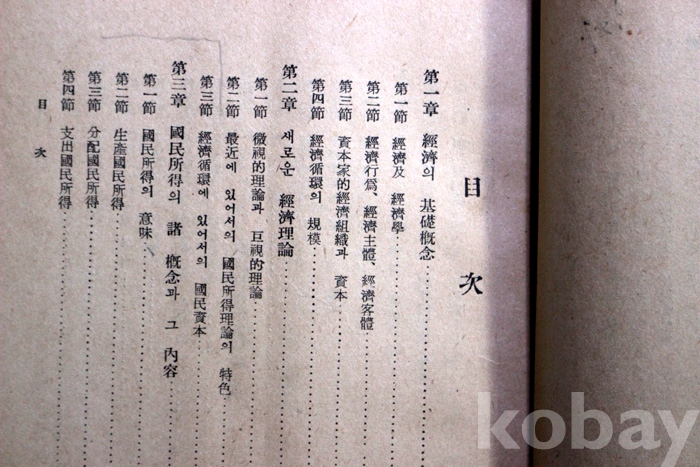 目次
第一章 經濟의 基礎槪念
第一節 經濟及 經濟學
第二節 經濟行爲、經濟主體、經濟客體
第三節 資本家的經濟組織과 資本
第四節 經濟循環의 規模
第二章 새로운 經濟理論
第一節 微視的理論과 巨視的理論
第二節 最近에 있어서의 國民所得理論의 特色
第三節 經濟循環에 있어서의 國民資本
第三章 國民所得의 諸 槪念과 그 內容
第一節 國民所得의 意味
第二節 生產國民所得
第三節 分配國民所得
第四節 支出國民所得
目次
kobay